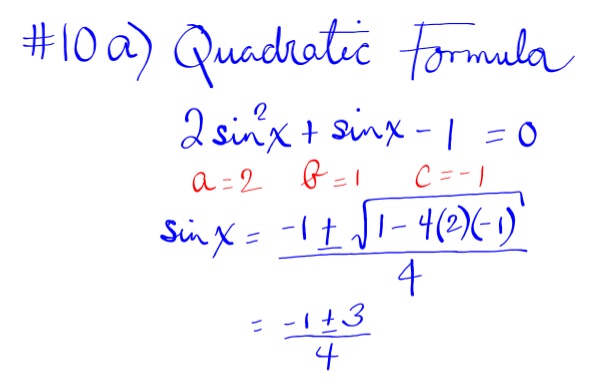 #10a) Quadratic Formula
2 sin²x + sin x - 1 = 0
a = 2 b = 1 c = -1
sin x = (-1 ± √(1 - 4(2)(-1))) / 4
= (-1 ± 3) / 4